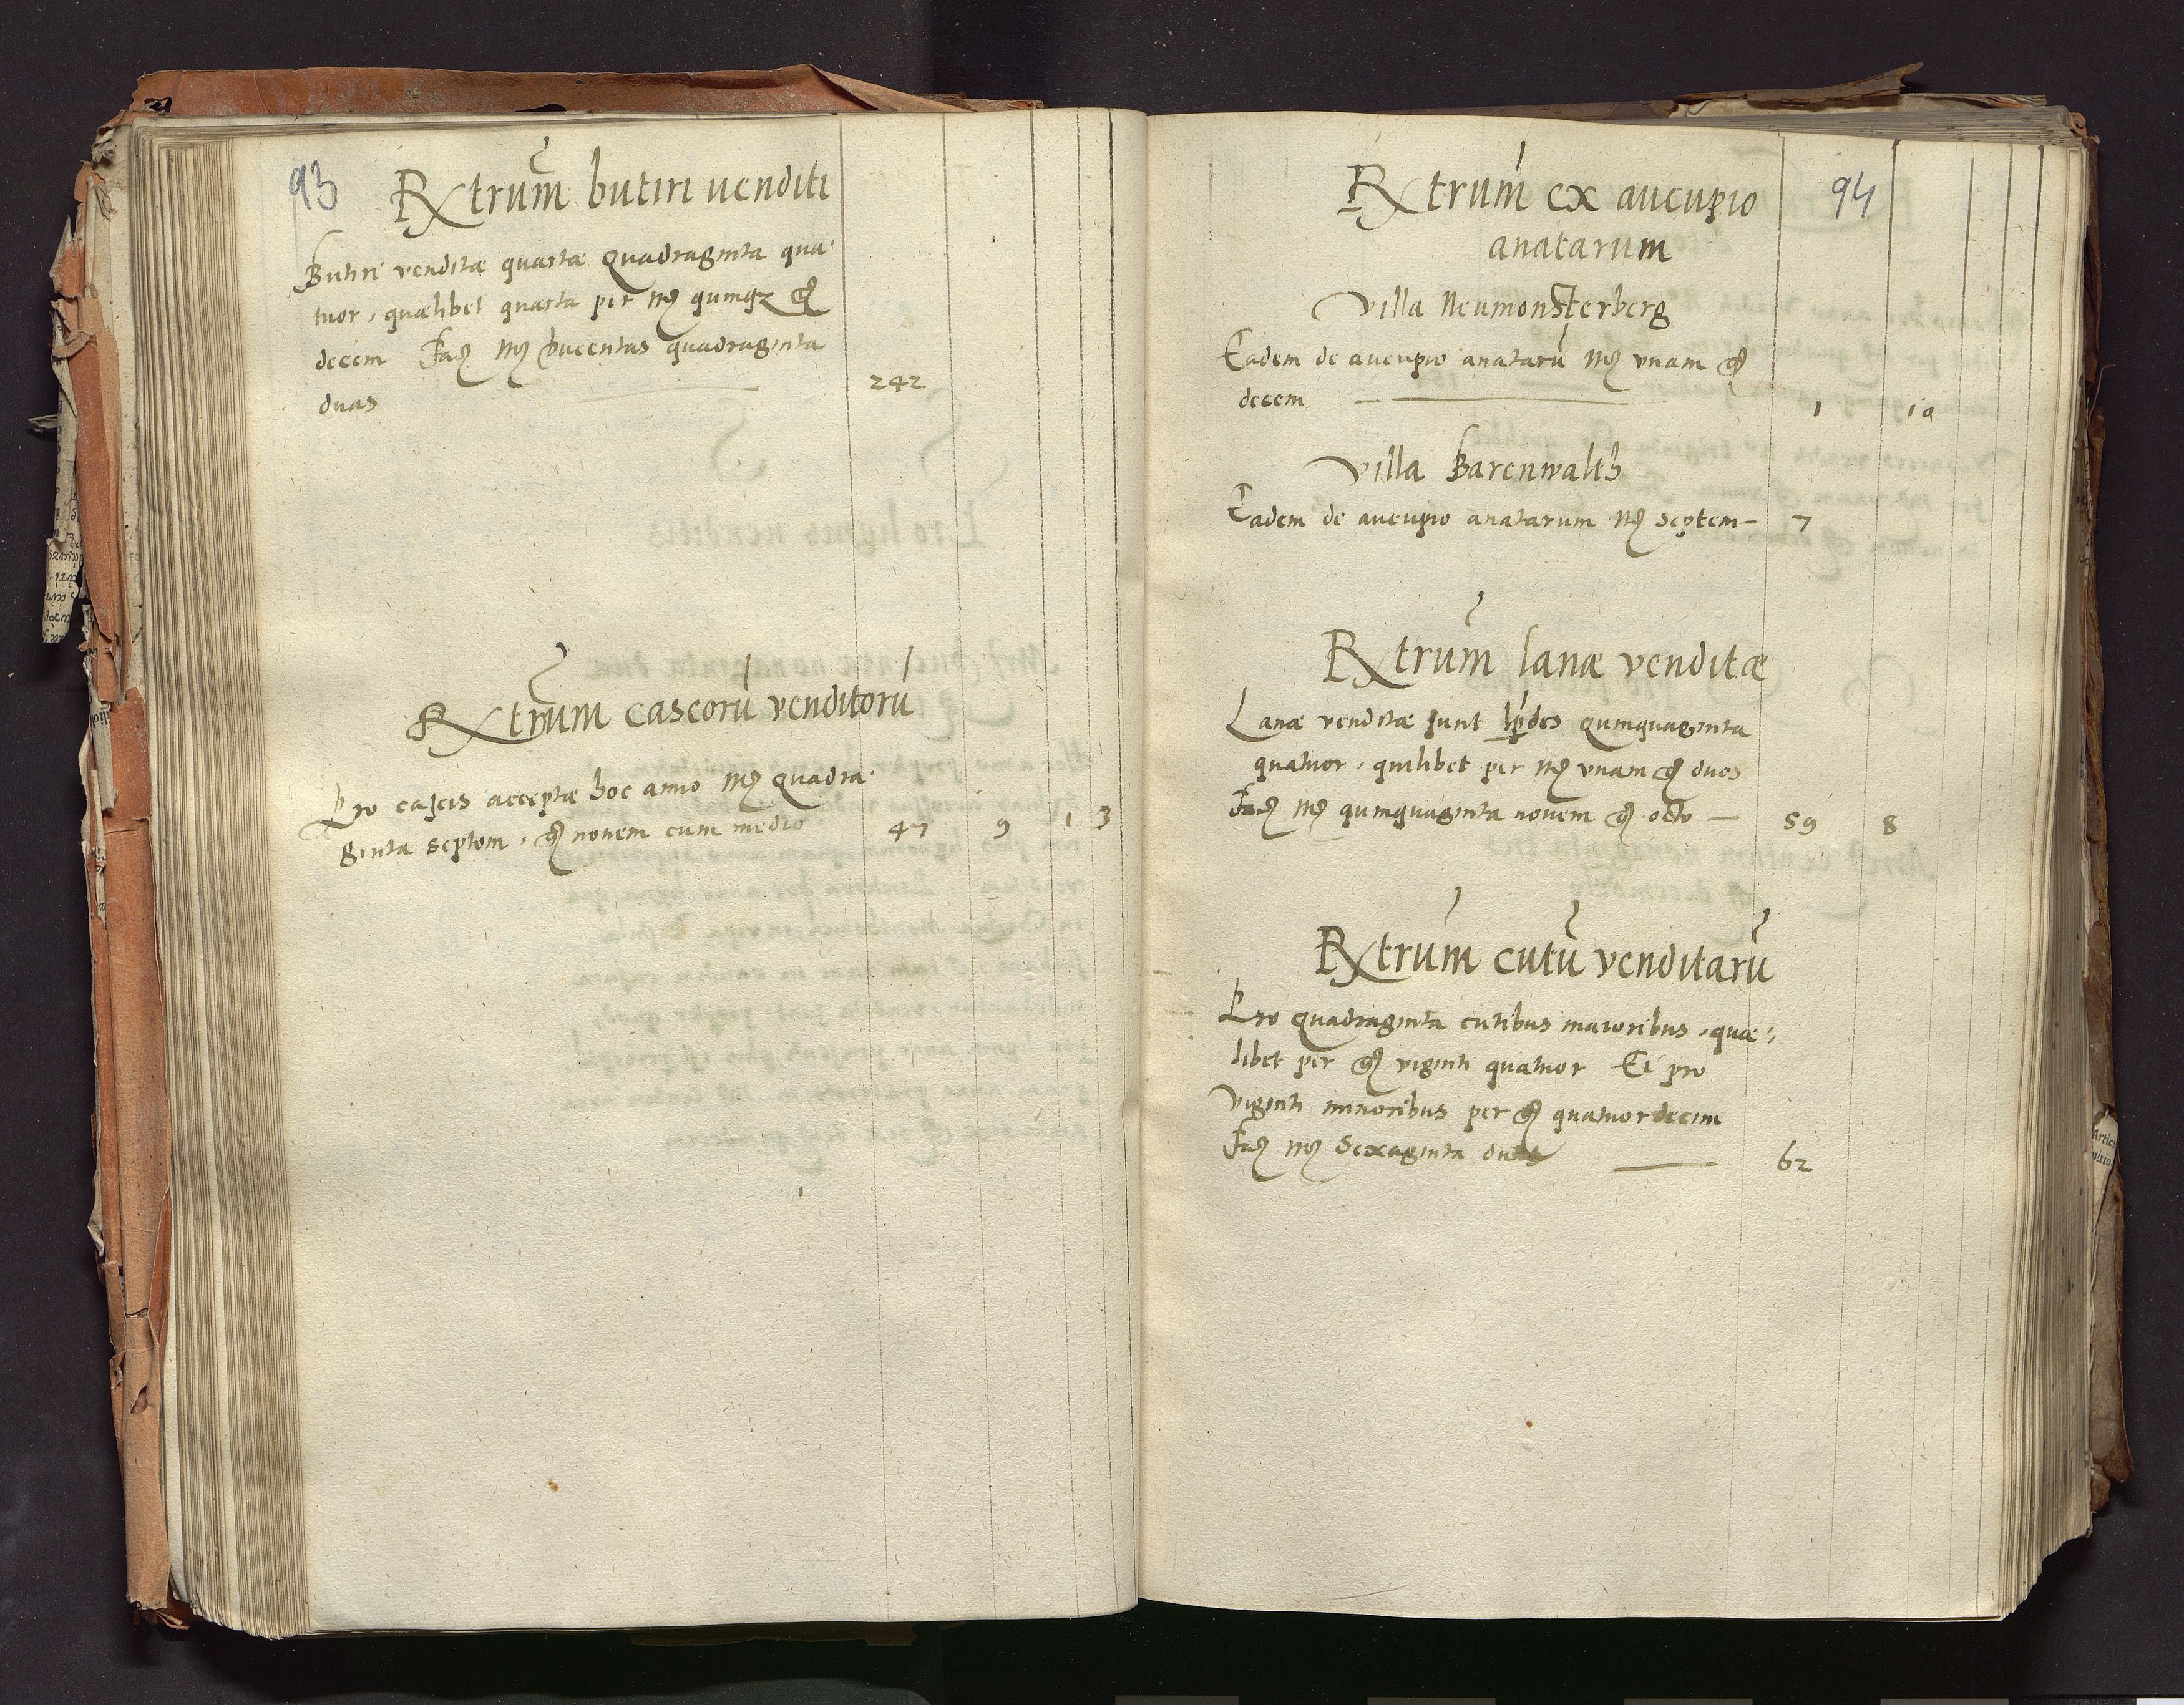 93
Rxtrum butiri venditi
Butiri venditæ quartæ Quadraginta qua-
tuor, quælibet quarta per Mr̃ quinqz gr̃
decem Faĉ Mr̃ Ducentas quadraginta
duas 242
Rxtrum caseorū venditorū
Pro caseis acceptæ hoc anno Mr̃ Quadra-
ginta septem, gr̃ novem cum medio 47 9 1 3
94
Rxtrum ex aucupio
anatarum
Villa Neumonsterberg
Eadem de aucupio anatarū Mr̃ vnam gr̃
decem 1 10
Villa Barenwalth
Eadem de aucupio anatarum Mr̃ septem 7
Rxtrum lanæ venditæ
Lanæ venditæ sunt lp̃des Quinquaginta
quatuor, quilibet per Mr̃ vnam gr̃ duos
Faĉ Mr̃ quinquaginta novem gr̃ octo 59 8
Rxtrum cutū venditarū
Pro quadraginta cutibus maioribus, quæ-
libet per gr̃ viginti quatuor Et pro
viginti minoribus per gr̃ quatuordecim
Faĉ Mr̃ Sexaginta duas 62